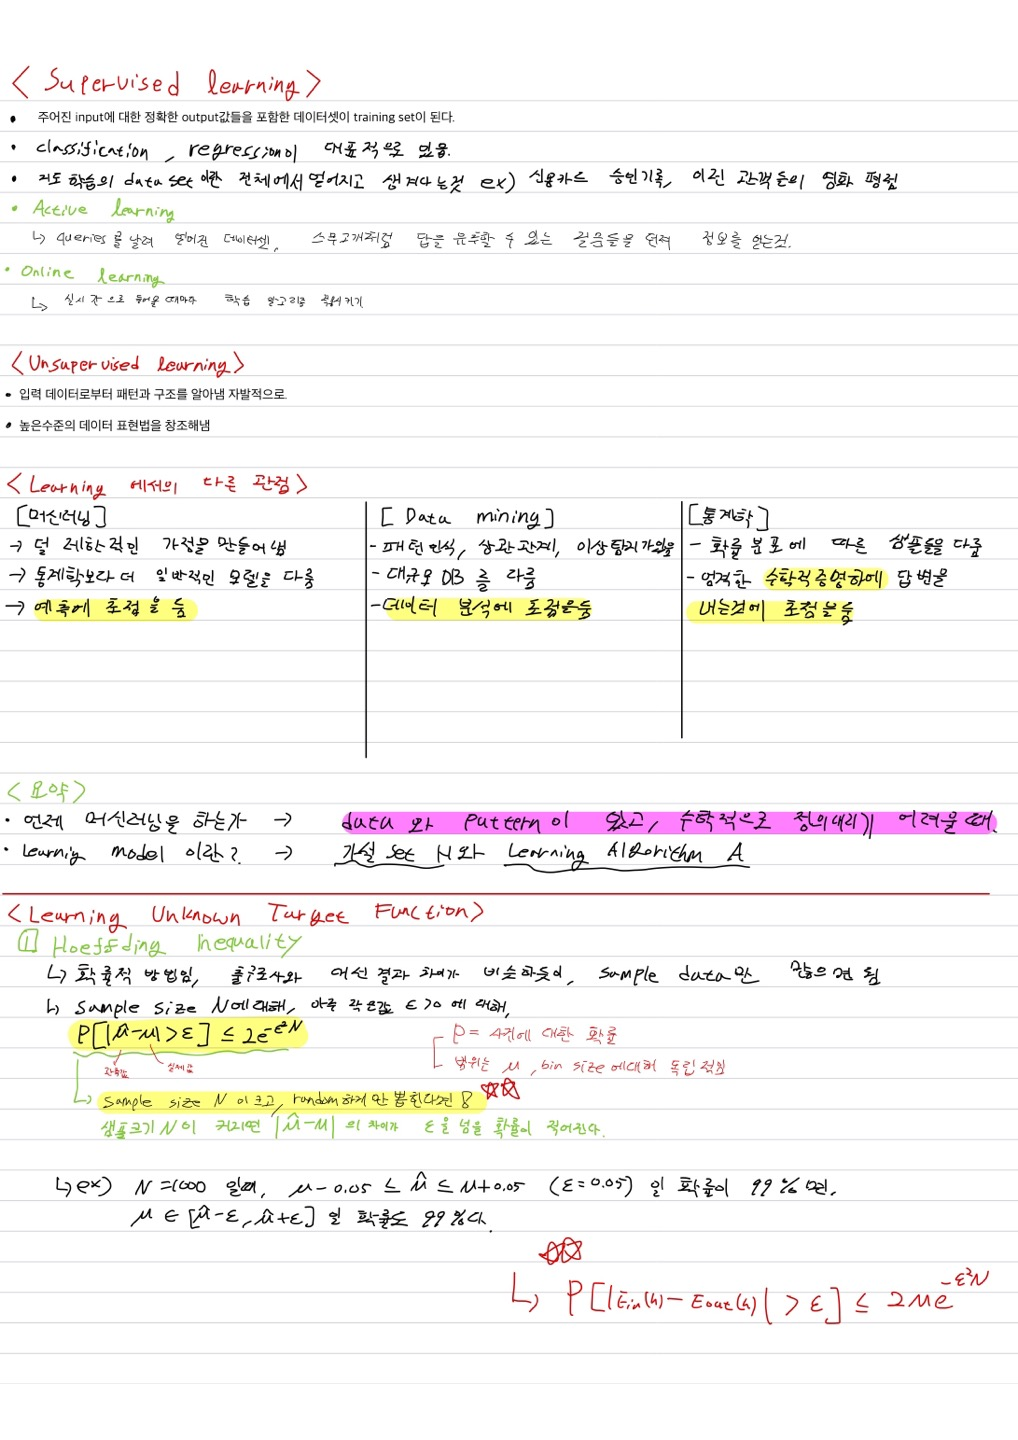 < Supervised learning >
• 주어진 input에 대한 정확한 output값들을 포함한 데이터셋이 training set이 된다.
• classification, regression이 대표적으로 있음.
• 지도 학습의 data set 이란 전체에서 얻어지고 생겨나는것 ex) 신용카드 승인기록, 이전 관객들의 영화 평점
• Active learning
↳ queries를 날려 얻어진 데이터셋, 스무고개처럼 답을 유추할 수 있는 질문들을 던져 정보를 얻는것.
• Online learning
↳ 실시간으로 들어올 때마다 학습 알고리즘
< Unsupervised learning >
• 입력 데이터로부터 패턴과 구조를 알아냄 자발적으로.
• 높은수준의 데이터 표현법을 창조해냄
< Learning 에서의 다른 관점 >
[머신러닝]
→ 덜 제한적인 가정을 만들어냄
→ 통계학보다 더 일반적인 모델을 다룸
→ 예측에 초점을 둠
[ Data mining ]
- 패턴인식, 상관관계, 이상탐지 가있음
- 대규모 DB 를 다룸
- 데이터 분석에 초점을둠
[통계학]
- 확률분포에 따른 샘플들을 다룸
- 엄격한 수학적증명하에 답변을
내는것에 초점을둠
< 요약 >
• 언제 머신러닝을 하는가 → data 와 pattern이 있고, 수학적으로 정의내리기 어려울때.
• Learnig model 이란? → 가설 set H와 Learning Algorithm A
< Learning Unknown Target Function >
1 Hoeffding Inequality
↳ 확률적 방법임, 출구조사와 여선 결과 차이가 비슷하듯이, sample data만 많으면 됨
↳ Sample size N에대해, 아주 작은값 ε>0 에 대해,
P[|μ̂-μ|>ε] ≤ 2e^-ε²N
관측값 실제값
P = 사건에 대한 확률
범위는 μ, bin size에대해 독립적임
↳ Sample size N 이 크고, random하게만 뽑힌다면 ☆☆
샘플크기 N이 커지면 |μ̂-μ| 의 차이가 ε을 넘을 확률이 적어진다.
↳ ex) N=1000 일때, μ-0.05 ≤ μ̂ ≤ μ+0.05 (ε=0.05) 일 확률이 99%면,
μ ∈ [μ̂-ε, μ̂+ε] 일 확률도 99%다.
☆☆
↳ P[|Ein(h) - Eout(h)| > ε] ≤ 2Me^-ε²N